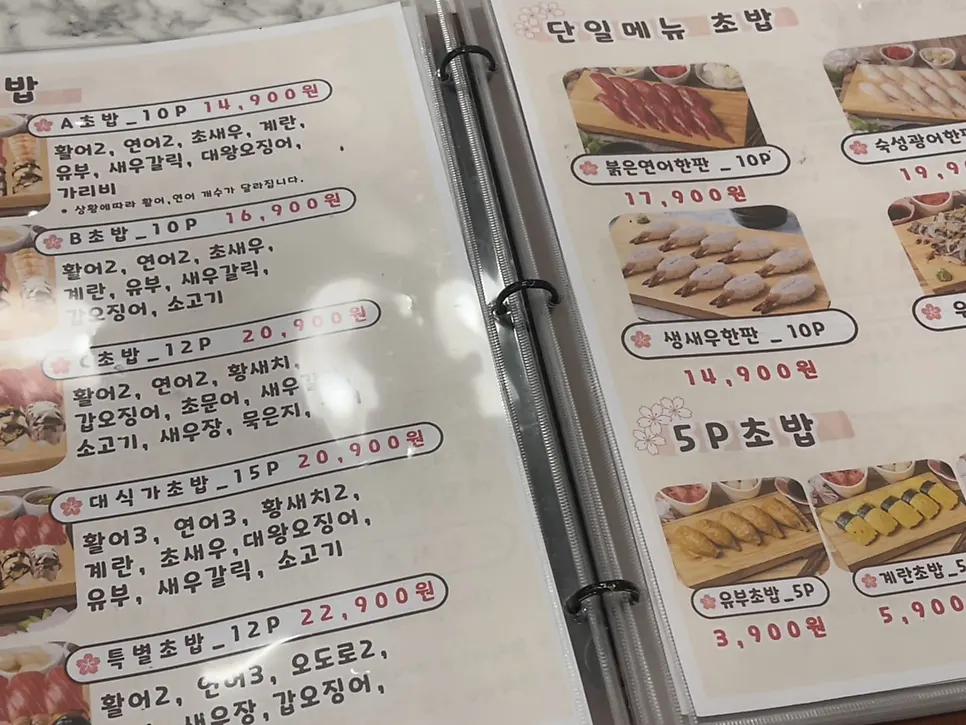 밥
A초밥_10P 14,900원
활어2, 연어2, 초새우, 계란,
유부, 새우갈릭, 대왕오징어,
가리비
* 상황에따라 활어,연어 개수가 달라집니다.
B초밥_10P 16,900원
활어2, 연어2, 초새우,
계란, 유부, 새우갈릭,
갑오징어, 소고기
C초밥_12P 20,900원
활어2, 연어2, 황새치,
갑오징어, 초문어,
소고기, 새우장, 묵은지,
대식가초밥_15P 20,900원
활어3, 연어3, 황새치2,
계란, 초새우,대왕오징어,
유부, 새우갈릭, 소고기
특별초밥_12P 22,900원
활어2, 연어3, 오도로2,
새우장, 갑오징어,
단일메뉴 초밥
붉은연어한판 _10P
17,900원
숙성광어한판
19,9
생새우한판 _10P
14,900원
5P초밥
유부초밥_5P
3,900원
계란초밥_5
5,900